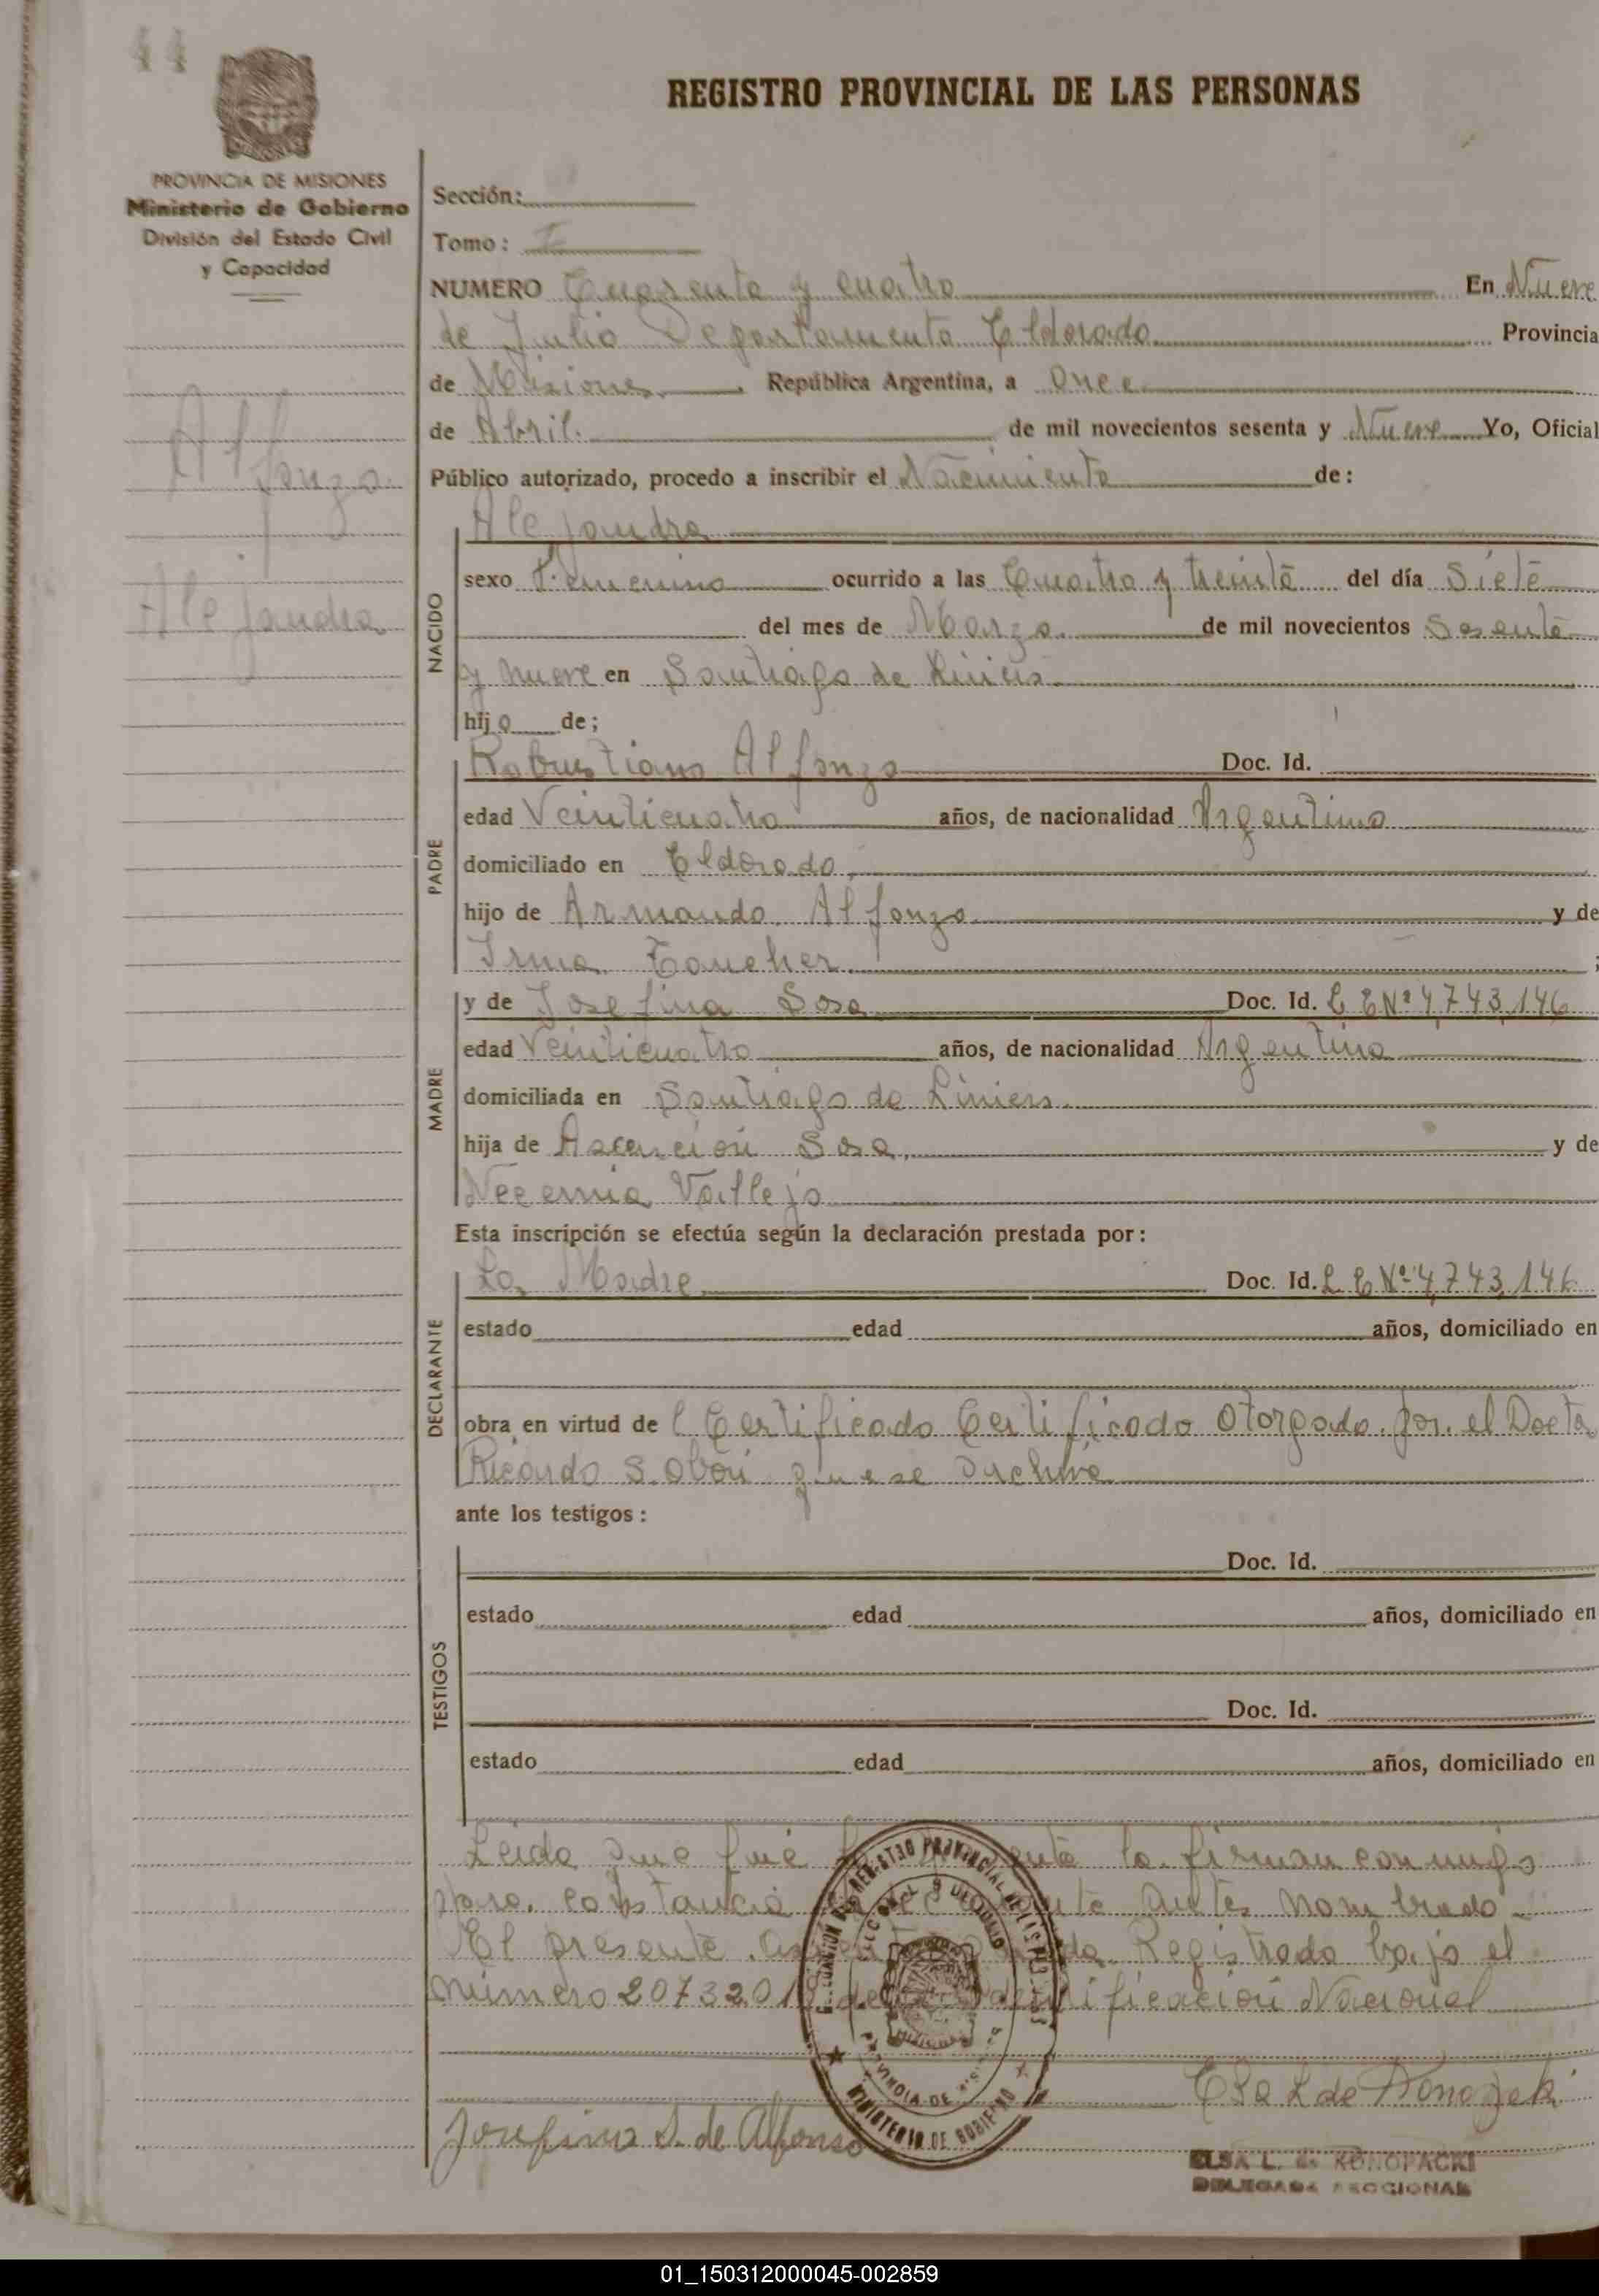 44
REGISTRO PROVINCIAL DE LAS PERSONAS
PROVINCIA DE MISIONES
Ministerio de Gobierno
División del Estado Civil
y Capacidad
Sección:
Tomo: I
NUMERO Cuarenta y cuatro En Nueve
de Julio Departamento Eldorado Provincia
de Misiones República Argentina, a once
de Abril. de mil novecientos sesenta y Nueve Yo, Oficial
Público autorizado, procedo a inscribir el Nacimiento de:
Alfonzo
Alejandra
NACIDO
Alejandra
sexo Femenino ocurrido a las Cuatro y treinta del día Siete
del mes de Marzo. de mil novecientos Sesenta
y nueve en Santiago de Liniers
hijo de;
PADRE
Robustiano Alfonzo Doc. Id.
edad Veinticuatro años, de nacionalidad Argentino
domiciliado en Eldorado,
hijo de Armando Alfonzo y de
Irma ;
MADRE
y de Josefina Sosa Doc. Id. L E Nº 4,743,146
edad Veinticuatro años, de nacionalidad Argentina
domiciliada en Santiago de Liniers.
hija de Ascención Sosa, y de
Vallejo
Esta inscripción se efectúa según la declaración prestada por:
DECLARANTE
La Madre Doc. Id. L E Nº 4,743,146
estado edad años, domiciliado en
obra en virtud de l Certificado Certificado otorgado por el Docto
Ricardo que se archiva
ante los testigos:
TESTIGOS
Doc. Id.
estado edad años, domiciliado en
Doc. Id.
estado edad años, domiciliado en
Leida que fué la firman conmigo
para constancia antes nombrado
El presente Registrado bajo el
número 2073201 Identificación Nacional
MINISTERIO DE GOBIERNO
Elsa L de Konopaki
Josefina S. de Alfonso
ELSA L. de KONOPACKI
DELEGADA SECCIONAL
01_150312000045-002859